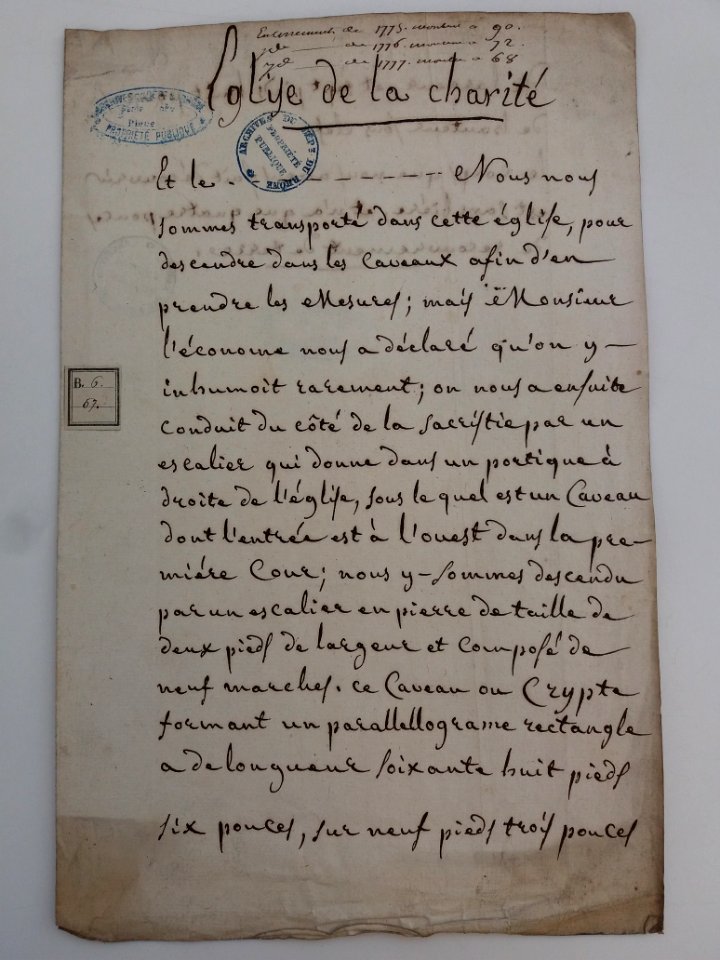 Enterrement, de 1775. montent à 90.
id — de 1776. montent à 72.
id — de 1777. monte à 68
Eglise de la charité
ARCHIVES DU DÉPT DU RHÔNE
PROPRIÉTÉ PUBLIQUE
PROPRIÉTÉ PUBLIQUE
Et le . - - - - - - - Nous nous
sommes transporté dans cette église, pour
descendre dans les Caveaux afin d'en
prendre les Mesures ; mais Monsieur
l'économe nous a déclaré qu'on y-
inhumoit rarement ; on nous a ensuite
B. 6.
67.
Conduit du côté de la sacristie par un
escalier qui donne dans un portique à
droite de l'église, sous le quel est un Caveau
dont l'entrée est à l'ouest dans la pre-
miére Cour ; nous y-sommes descendu
par un escalier en pierre de taille de
deux pieds de largeur et Composé de
neuf marches. ce Caveau ou Crypte
formant un parallellograme rectangle
a de longueur soixante huit pieds
six pouces, sur neuf pieds trois pouces